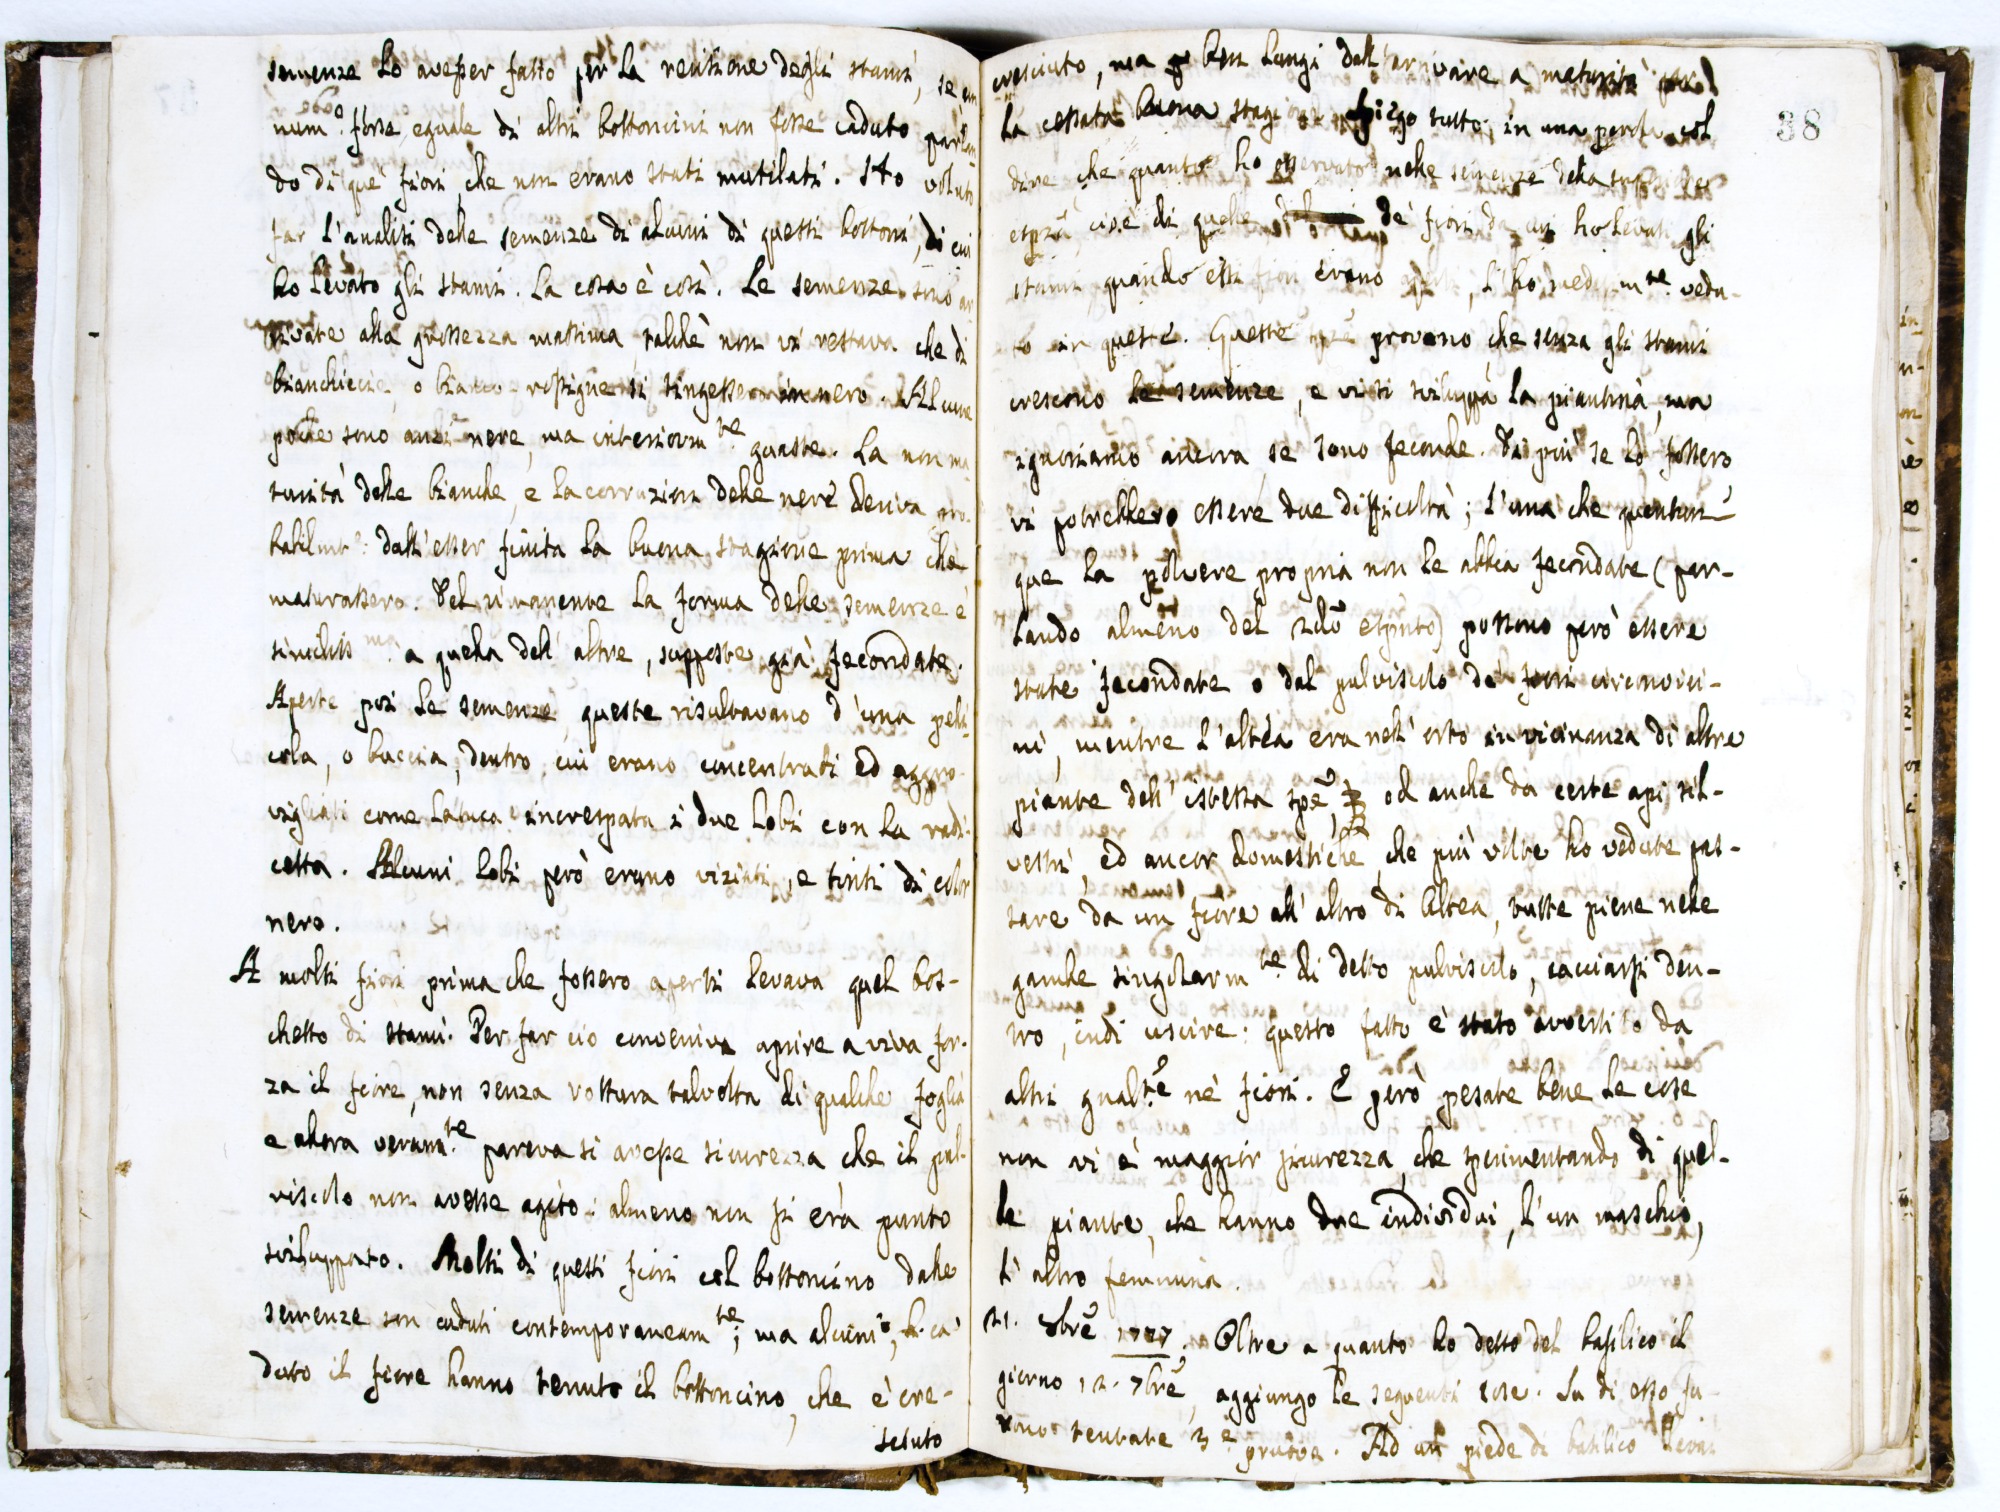 semenze lo avesser fatto per la recisione degli stami, se un
num.o forse eguale di altri bottoncini non fosse caduto parlan
do di que' fiori, che non erano stati mutilati. Ho voluto
far l'analisi delle semenze di alcuni di questi bottoni, di cui
ho levato gli stami. La cosa è così. Le semenze sono ar
rivate alla grossezza massima, talchè non vi restava che di
bianchiccie, o bianco-rossigne si tingessero in nero. Alcune
poche sono anzi nere, ma interiorm.te guaste. La non ma
turità delle bianche, e la corruzion delle nere deriva pro-
babilmte: dall'esser finita la buona stagione prima che
maturassero. Del rimanente la forma delle semenze è
similiss.ma a quella dell'altre, supposte già fecondate.
Aperte poi le semenze, queste risultavano d'una peli
cola, o buccia, dentro cui erano concentrati ed aggro-
vigliati come lattuca increspata i due lobi con la radi-
cetta. Alcuni lobi però erano viziati, e tinti di color
nero.
A molti fiori prima che fossero aperti levava quel bos-
chetto di stami. Per far ciò conveniva aprire a viva for-
za il fiore, non senza rottura talvolta di qualche foglia
e allora veram.te pareva si avesse sicurezza che il pul-
viscolo non avesse agito: almeno non si era punto
sviluppato. Molti di questi fiori col bottoncino dalle
semenze son caduti contemporaneam.te; ma alcuni, ca
duto il fiore hanno tenuto il bottoncino, che è cre-
sciuto
cresciuto, ma ben lungi dall'arrivare a maturità
la cessata buona stagione. Spiego tutto in una parola col
dire che quanto ho osservato nelle semenze della
espza, cioè di quelle de' fiori da cui ho levati gli
stami quando essi fiori erano aperti, l'ho medesim.te vedu-
to in queste. Queste spze provano che senza gli stami
crescono le semenze, e vi si sviluppa la piantina, ma
ignoriamo ancora se sono feconde. Di più se lo fossero
vi potrebbero essere due difficoltà; l'una che quantun-
que la polvere propria non le abbia fecondate (par-
lando almeno del 2do espnto) possono però essere
state fecondate o dal pulviscolo de' fiori circonvici-
ni, mentre l'altèa era nell'orto in vicinanza di altre
piante dell'istessa spe, od anche da certe api sil-
vestri, ed ancor domestiche, che più volte ho vedute pas-
sare da un fiore all'altro di Altea, tutte piene nelle
gambe singolarm.te di detto pulviscolo, cacciarsi den-
tro, indi uscire: questo fatto è stato avvertito da
altri gualte ne' fiori. E però pesate bene le cose
non vi è maggior sicurezza che sperimentando di quel-
le piante, che hanno due individui, l'un maschio,
l'altro femmina.
21. 8bre 1777. Oltre a quanto ho detto del basilico il
giorno 12. 7bre, aggiungo le seguenti cose. Su di esso fu-
rono tentate 3e pruove. Ad un piede di basilico levai
38